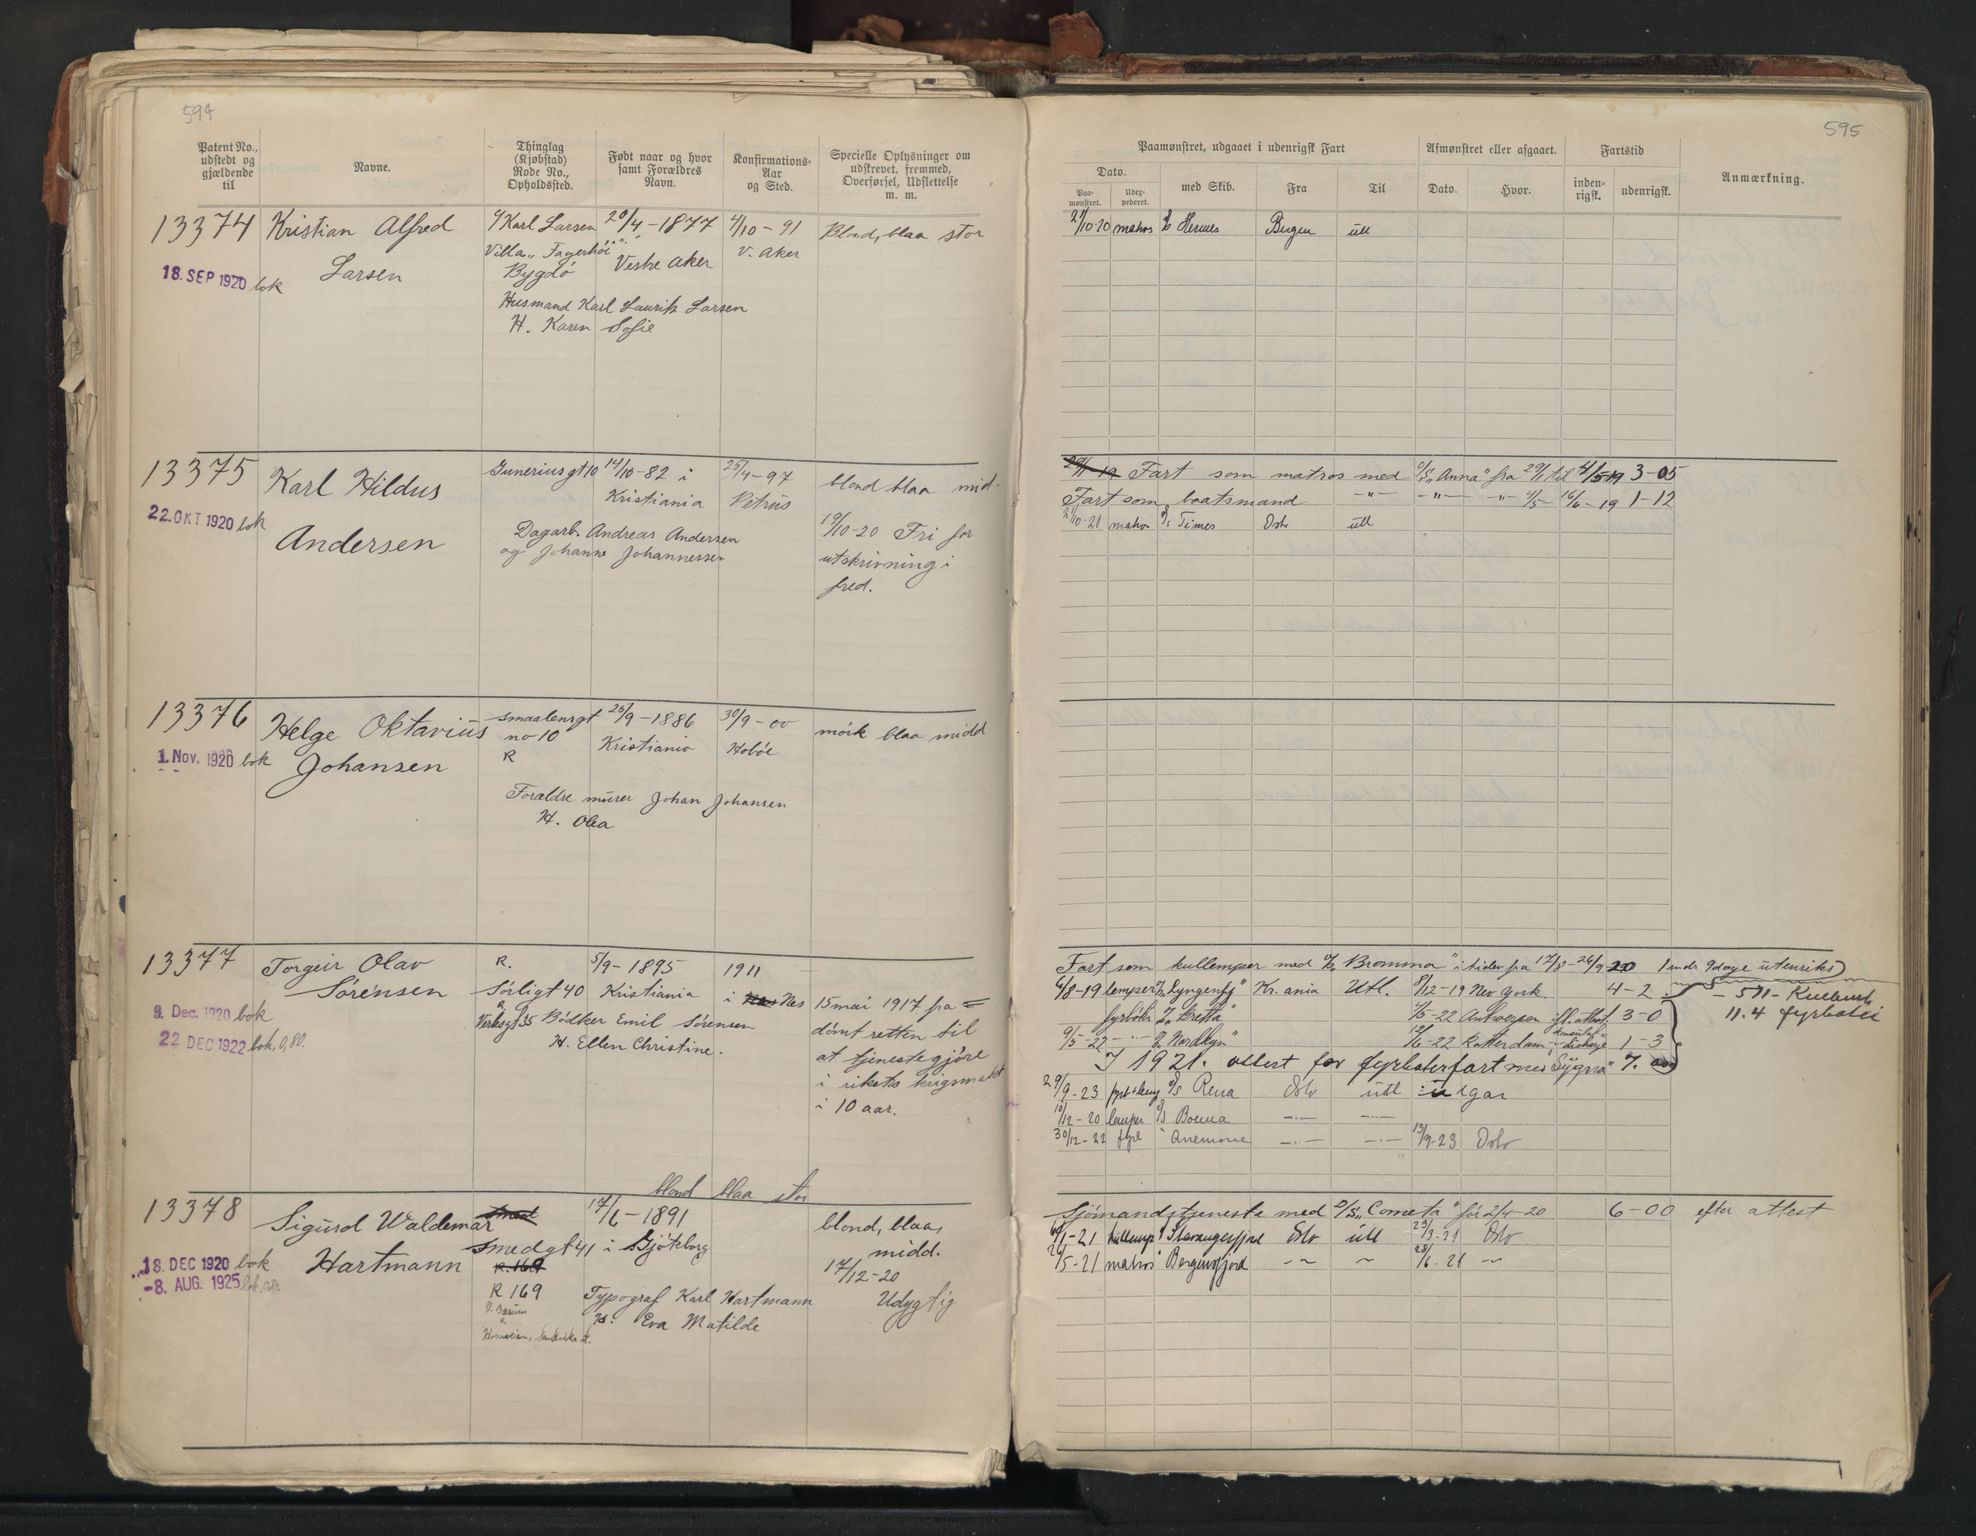 594
Patent No., udstedt og gjældende til
Navne.
Thinglag (Kjøbstad) Rode No., Opholdssted.
Født naar og hvor samt Forældres Navn.
Konfirmations-Aar og Sted.
Specielle Oplysninger om udskrevet, fremmed, Overførsel, Udslettelse m. m.
13374 Kristian Alfred Larsen
18. SEP 1920 bok
Karl Larsen
Villa „Fagerhöi"
Bygdö
20/4 - 1877
Vestre Aker
Husmand Karl Lauritz Larsen
H. Karen Sofie
4/10 - 91
V. Aker
Blond, blaa stor
13375 Karl Hildus Andersen
22. OKT 1920 bok
Guneriusgt 10
14/10 - 82 i
Kristiania
Dagarb. Andreas Andersen
og Johanne Johannessen
25/4 - 97
Petrus
blond blaa mid.
19/10-20 Fri for
utskrivning i
fred.
13376 Helge Oktavius Johansen
1. Nov. 1920 bok
Smaalensgt
no 10
R
25/9 - 1886
Kristiania
Forældre murer Johan Johansen
H. Olea
30/9 - 00
Hoböl
mörk blaa midd
13377 Torgeir Olav Sörensen
9. Dec. 1920 bok
22 DEC 1922 bok, 0,80.
R.
Sörligt 40
Verksgt 35
5/9 - 1895
Kristiania
Bödker Emil Sörensen
H. Ellen Christine.
1911
i Nes
15 mai 1917 fra =
dömt retten til
at tjenestegjöre
i rikets krigsmakt
i 10 aar.
blond blaa stor
13378 Sigurd Waldemar Hartmann
18. DEC 1920 bok
-8. AUG. 1925 bok
Smedgt 41
R. 169
R 169
V. Bærum
17/6 - 1891
i Gjöteborg
Typograf Karl Hartmann
H. Eva Matilde
blond, blaa,
midd.
17/12-20
Udygtig
595
Paamønstret, udgaaet i udenrigsk Fart
Afmønstret eller afgaaet.
Fartstid
Anmærkning.
Dato.
Paa-mønstret.
Udex-pederet.
med Skib.
Fra
Til
Dato.
Hvor.
inden-rigsk.
udenrigsk.
21/10-20 matros S/S Hermes Bergen utl
29/1 19 Fart som matros med S/S „Anna" fra 29/1 til 4/5-19 3-05
Fart som baatsmand -"- -"- " 4/5 - 16/6 - 19 1-12
21/10-21 matros S/S Times Oslo utl
Fart som kullemper med S/S Bromma" i tiden fra 17/8 - 26/9 20 1 mdr 9 dage utenriks
6/8-19 lemper S/S Lyngenfj" Kr.ania Utl. 8/12-19 New York. 4-2
fyrbötr S/S Gretta" 4/5-22 Antwerpen ifl. attest 3-0
9/5-22 -"- S/S Nordkyn" 12/6-22 Rotterdam, 1-3
- 511 - Kullemp
11.4 fyrböter
I 1921. attest for fyrböterfart med Sygna" 7.
29/9-23 S/S Rena Oslo utl
10/12-20 lemper S/S Bomma -"- -"-
30/12-22 fyrb " Anemone -"- -"- 13/9-23 Oslo
Sjömandstjeneste med S/S „Cometa" för 2/4-20 6-00 efter attest
6/1-21 kullemp. " Stavangerfjord Oslo utl 23/3-21 Oslo
26/5-21 matros " Bergensfjord -"- " 28/6-21 -"-